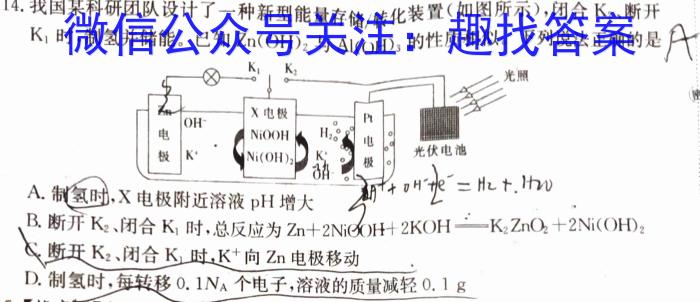 14. 我国某科研团队设计了一种新型能量存储/转化装置(如图所示),闭合 K₂、断开
K₁ 时,制氢并储能。已知 Zn(OH)₂ 与 Al(OH)₃ 的性质 下列说法正确的是 A
微信公众号关注：趣找答案
K₁ K₂ 光照
Zn 电极 OH⁻ K⁺
X 电极 NiOOH Ni(OH)₂
H₂ K⁺ OH⁻
Pt 电极
光伏电池
A. 制氢时,X 电极附近溶液 pH 增大
B. 断开 K₂、闭合 K₁ 时,总反应为 Zn+2NiOOH+2KOH══K₂ZnO₂+2Ni(OH)₂
C. 断开 K₂、闭合 K₁ 时,K⁺向 Zn 电极移动
D. 制氢时,每转移 0.1Nᴀ 个电子,溶液的质量减轻 0.1 g